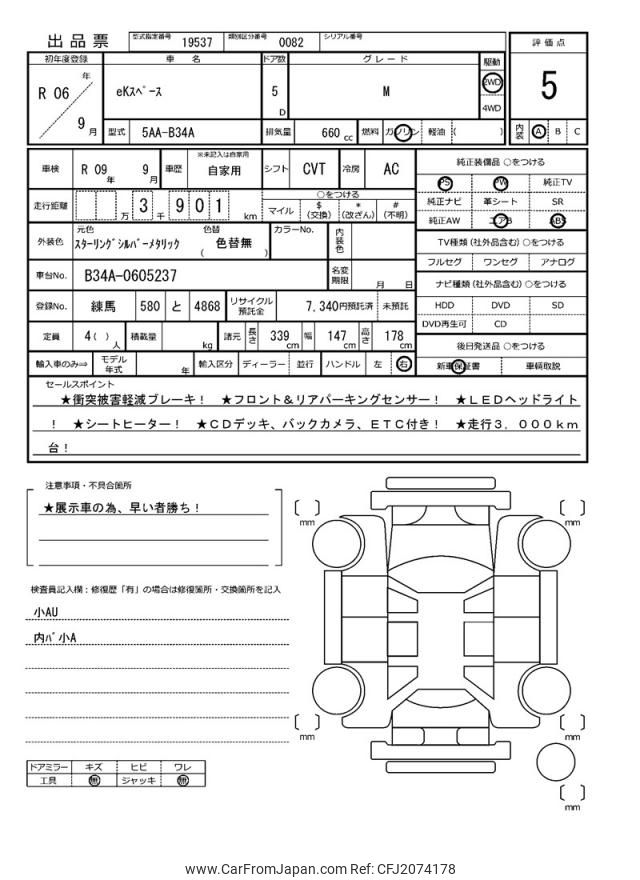 出品票 型式指定番号 19537 類別区分番号 0082 シリアル番号
初年度登録 車名 ドア数 グレード 駆動 評価点
R 06 年 9 月 eKスペース 5 D M 2WD 4WD 5
型式 5AA-B34A 排気量 660 cc 燃料 ガソリン 軽油 ( ) 内装 A B C
車検 R 09 年 9 月 車歴 ※未記入は自家用 自家用 シフト CVT 冷房 AC
走行距離 万 3 千 9 0 1 km ○をつける
マイル $(交換) *(改ざん) #(不明)
外装色 元色 スターリングシルバーメタリック 色替 ( 色替無 ) カラーNo. 内装色
車台No. B34A-0605237 名変期限 月 日
登録No. 練馬 580 と 4868 リサイクル預託金 7,340円預託済 未預託
定員 4 ( ) 人 積載量 kg 諸元 長さ 339 cm 幅 147 cm 高さ 178 cm
輸入車のみ⇒ モデル年式 年 輸入区分 ディーラー 並行 ハンドル 左 右
純正装備品 ○をつける
PS PW 純正TV
純正ナビ 革シート SR
純正AW エアB ABS
TV種類 (社外品含む) ○をつける
フルセグ ワンセグ アナログ
ナビ種類 (社外品含む) ○をつける
HDD DVD SD
DVD再生可 CD
後日発送品 ○をつける
新車保証書 車輌取説
セールスポイント
★衝突被害軽減ブレーキ! ★フロント&リアパーキングセンサー! ★LEDヘッドライト
! ★シートヒーター! ★CDデッキ、バックカメラ、ETC付き! ★走行3,000km
台!
注意事項・不具合箇所
★展示車の為、早い者勝ち!
検査員記入欄:修復歴「有」の場合は修復箇所・交換箇所を記入
小AU
内バ小A
ドアミラー キズ ヒビ ワレ
工具 無 ジャッキ 無
mm
mm
mm
mm
mm
www.CarFromJapan.com Ref: CFJ2074178